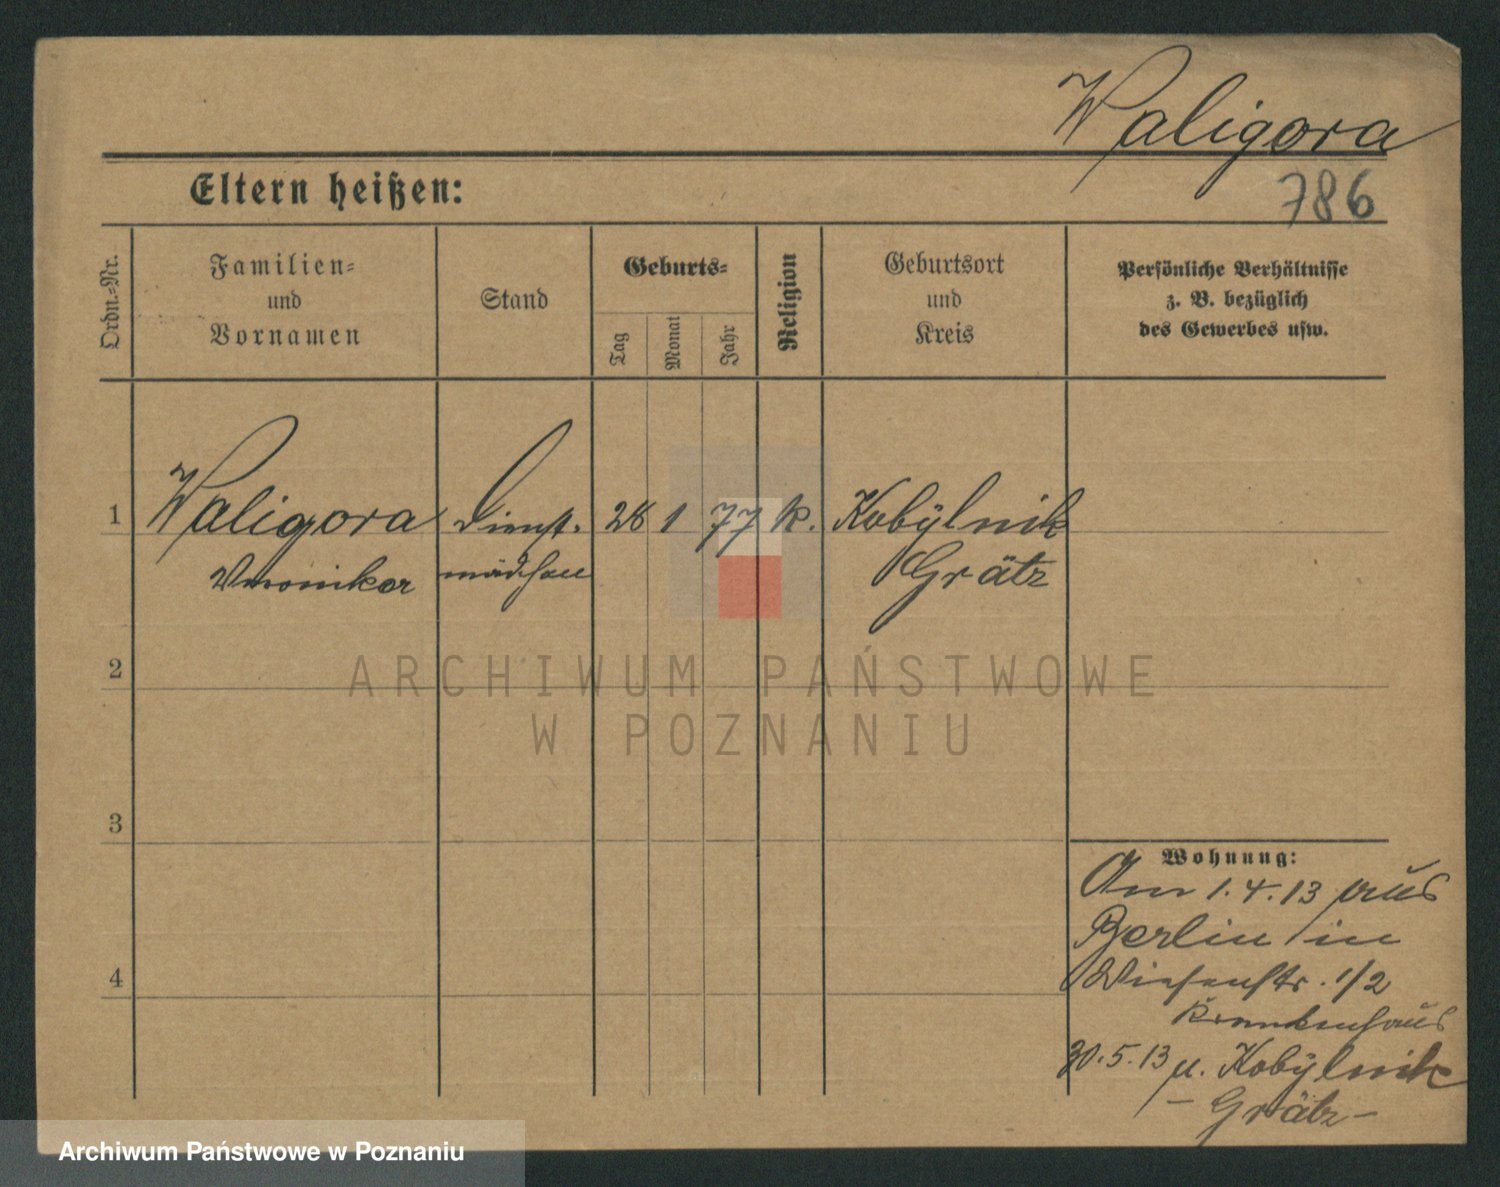 Waligora
Eltern heißen:
786
Ordn.-Nr.
Familien-
und
Vornamen
Stand
Geburts-
Tag
Monat
Jahr
Religion
Geburtsort
und
Kreis
Persönliche Verhältnisse
z. B. bezüglich
des Gewerbes usw.
1
Waligora Dienst- 28 1 77 k. Kobylnik
Veronika mädchen Grätz
2
ARCHIWUM PAŃSTWOWE
W POZNANIU
3
Wohnung:
Am 1.4.13 aus
Berlin in
4
Wiesenstr. 1/2
Krankenhaus
30.5.13 n. Kobylnik
- Grätz -
Archiwum Państwowe w Poznaniu